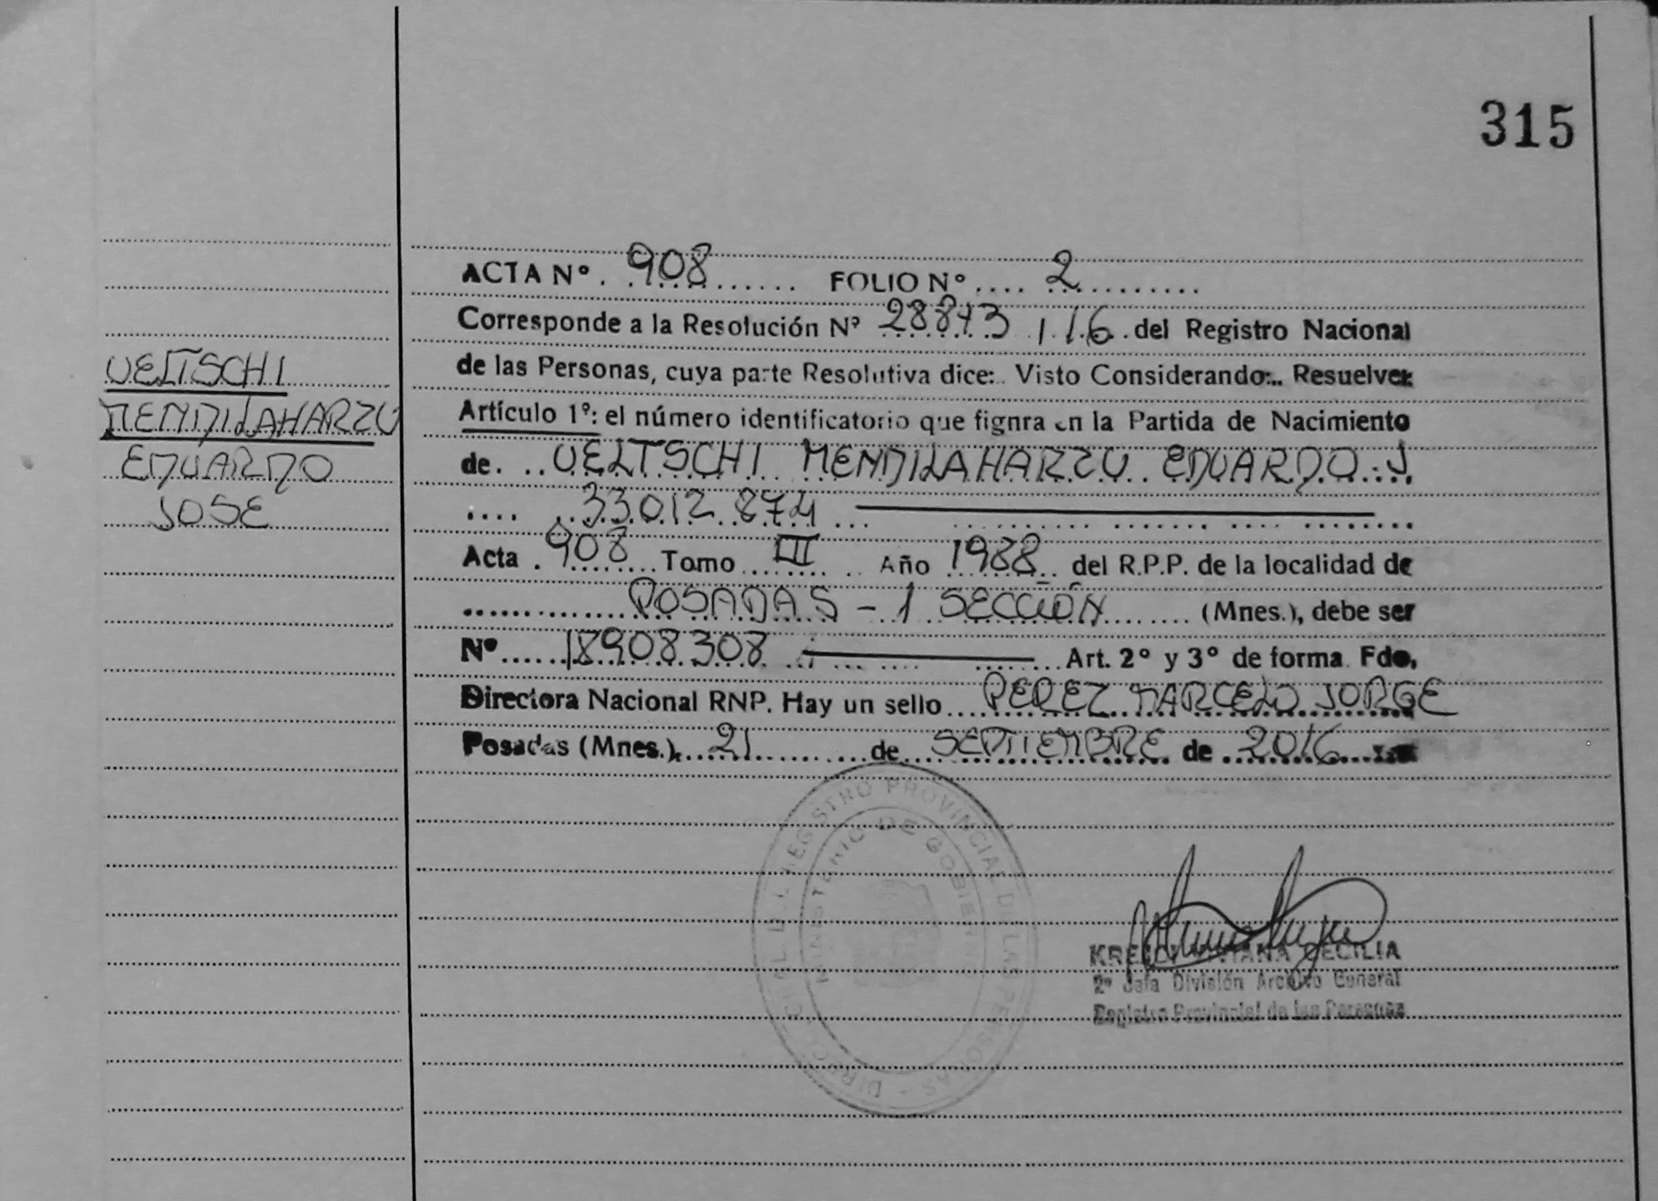 315
ACTA Nº. 908 ...... FOLIO Nº .... 2 .........
Corresponde a la Resolución Nº 28843 / 16 . del Registro Nacional
de las Personas, cuya parte Resolutiva dice:. Visto Considerando:.. Resuelve:
Artículo 1º: el número identificatorio que fignra en la Partida de Nacimiento
de. .. UELTSCHI MENDILAHARZU EDUARDO J.
.... 33.012.874 ...
Acta . 908 Tomo III Año 1988 del R.P.P. de la localidad de
POSADAS - 1 SECCIÓN ........ (Mnes.), debe ser
Nº...... 18908308 Art. 2º y 3º de forma. Fdo,
Directora Nacional RNP. Hay un sello ... PEREZ MARCELO JORGE
Posadas (Mnes.), 21 de SEPTIEMBRE de 2016
UELTSCHI
MENDILAHARZU
EDUARDO
JOSE
REGISTRO PROVINCIAL DE LAS PERSONAS
MINISTERIO DE GOBIERNO
CECILIA
2º Jefa División Archivo General
Registro Provincial de las Personas